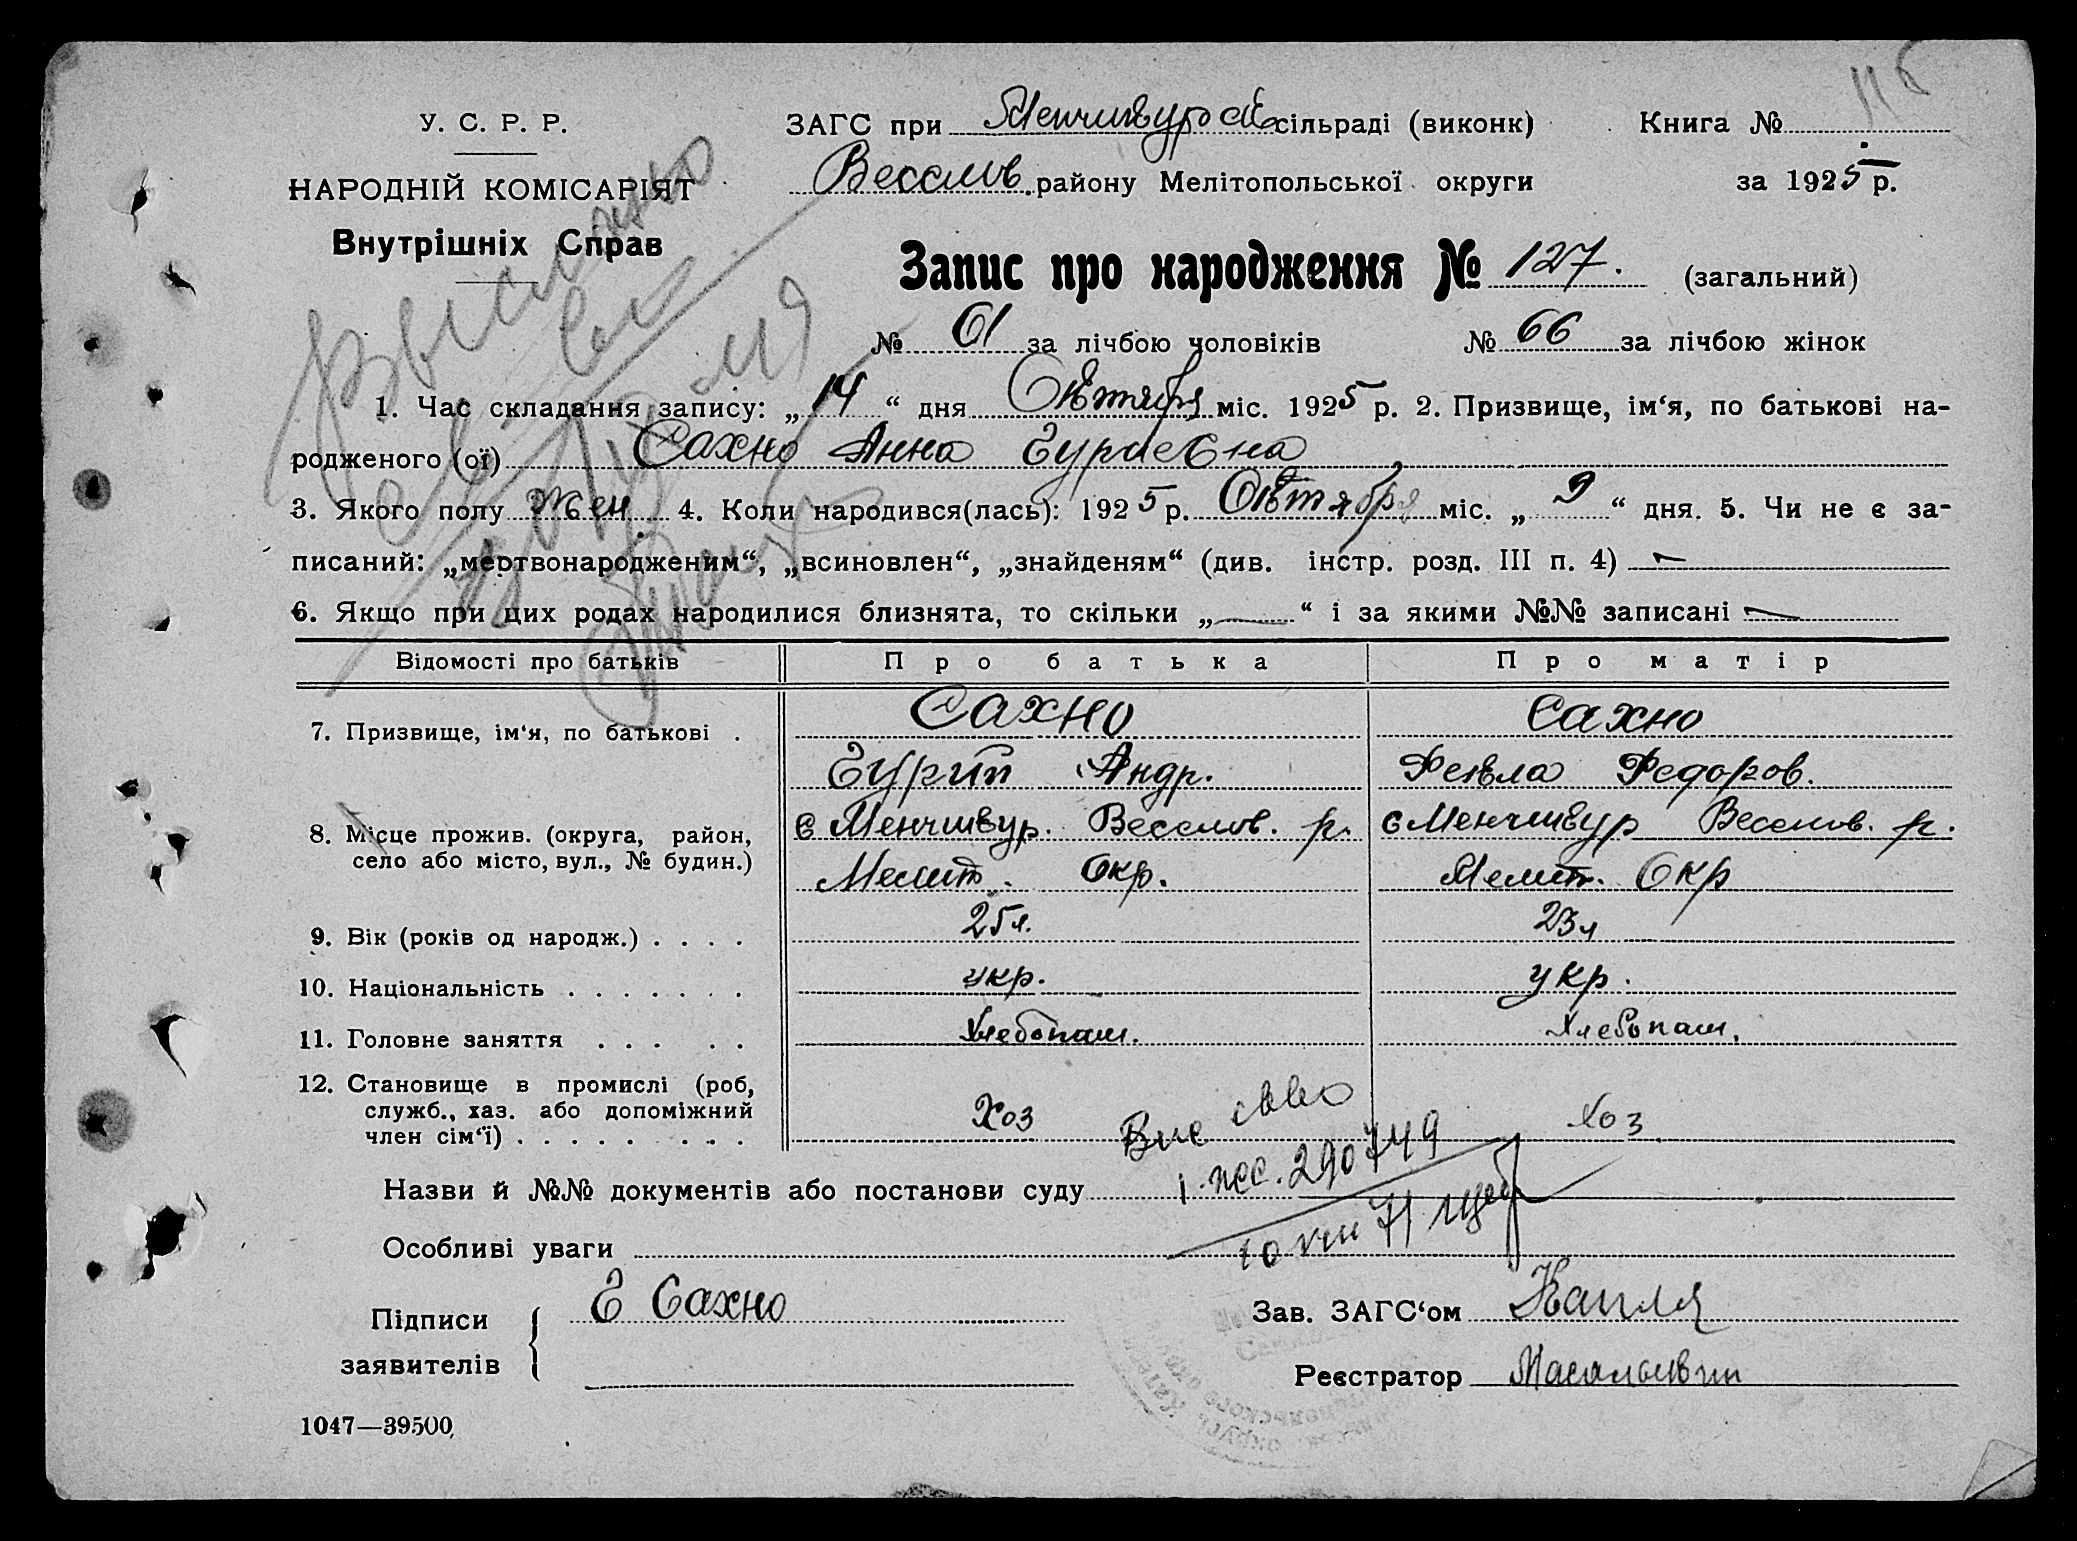 116
У. С. Р. Р.
НАРОДНІЙ КОМІСАРІЯТ
Внутрішніх Справ
ЗАГС при Менчикур сільраді (виконк) Книга №
Веселов. району Мелітопольської округи за 1925 р.
Запис про народження № 127. (загальний)
№ 61 за лічбою чоловіків № 66 за лічбою жінок
1. Час складання запису: „14“ дня Октября міс. 1925 р. 2. Призвище, ім‘я, по батькові на-
родженого (ої) Сахно Анна Гуриевна
3. Якого полу жен. 4. Коли народився(лась): 1925 р. Октября міс. „9“ дня. 5. Чи не є за-
писаний: „мертвонародженим“, „всиновлен“, „знайденям“ (див. інстр. розд. III п. 4) —
6. Якщо при цих родах народилися близнята, то скільки „—“ і за якими №№ записані —
Відомості про батьків Про батька Про матір
7. Призвище, ім‘я, по батькові . Сахно Сахно
Гурий Андр. Фекла Федоров.
8. Місце прожив. (округа, район, с Менчикур. Веселов. р. с Менчикур Веселов. р.
село або місто, вул., № будин.) Мелит. Окр. Мелит. Окр
9. Вік (років од народж.) . . . . 25 л. 23 л
10. Національність . . . . . . . укр. укр.
11. Головне заняття . . . . . Хлебопаш. Хлебопаш.
12. Становище в промислі (роб,
служб., хаз. або допоміжний
член сім‘ї) . . . . . . . . Хоз Хоз
Назви й №№ документів або постанови суду
290749
Особливі уваги
10 71
Підписи заявителів Г Сахно
Зав. ЗАГС‘ом Капля
Реєстратор
1047—39500